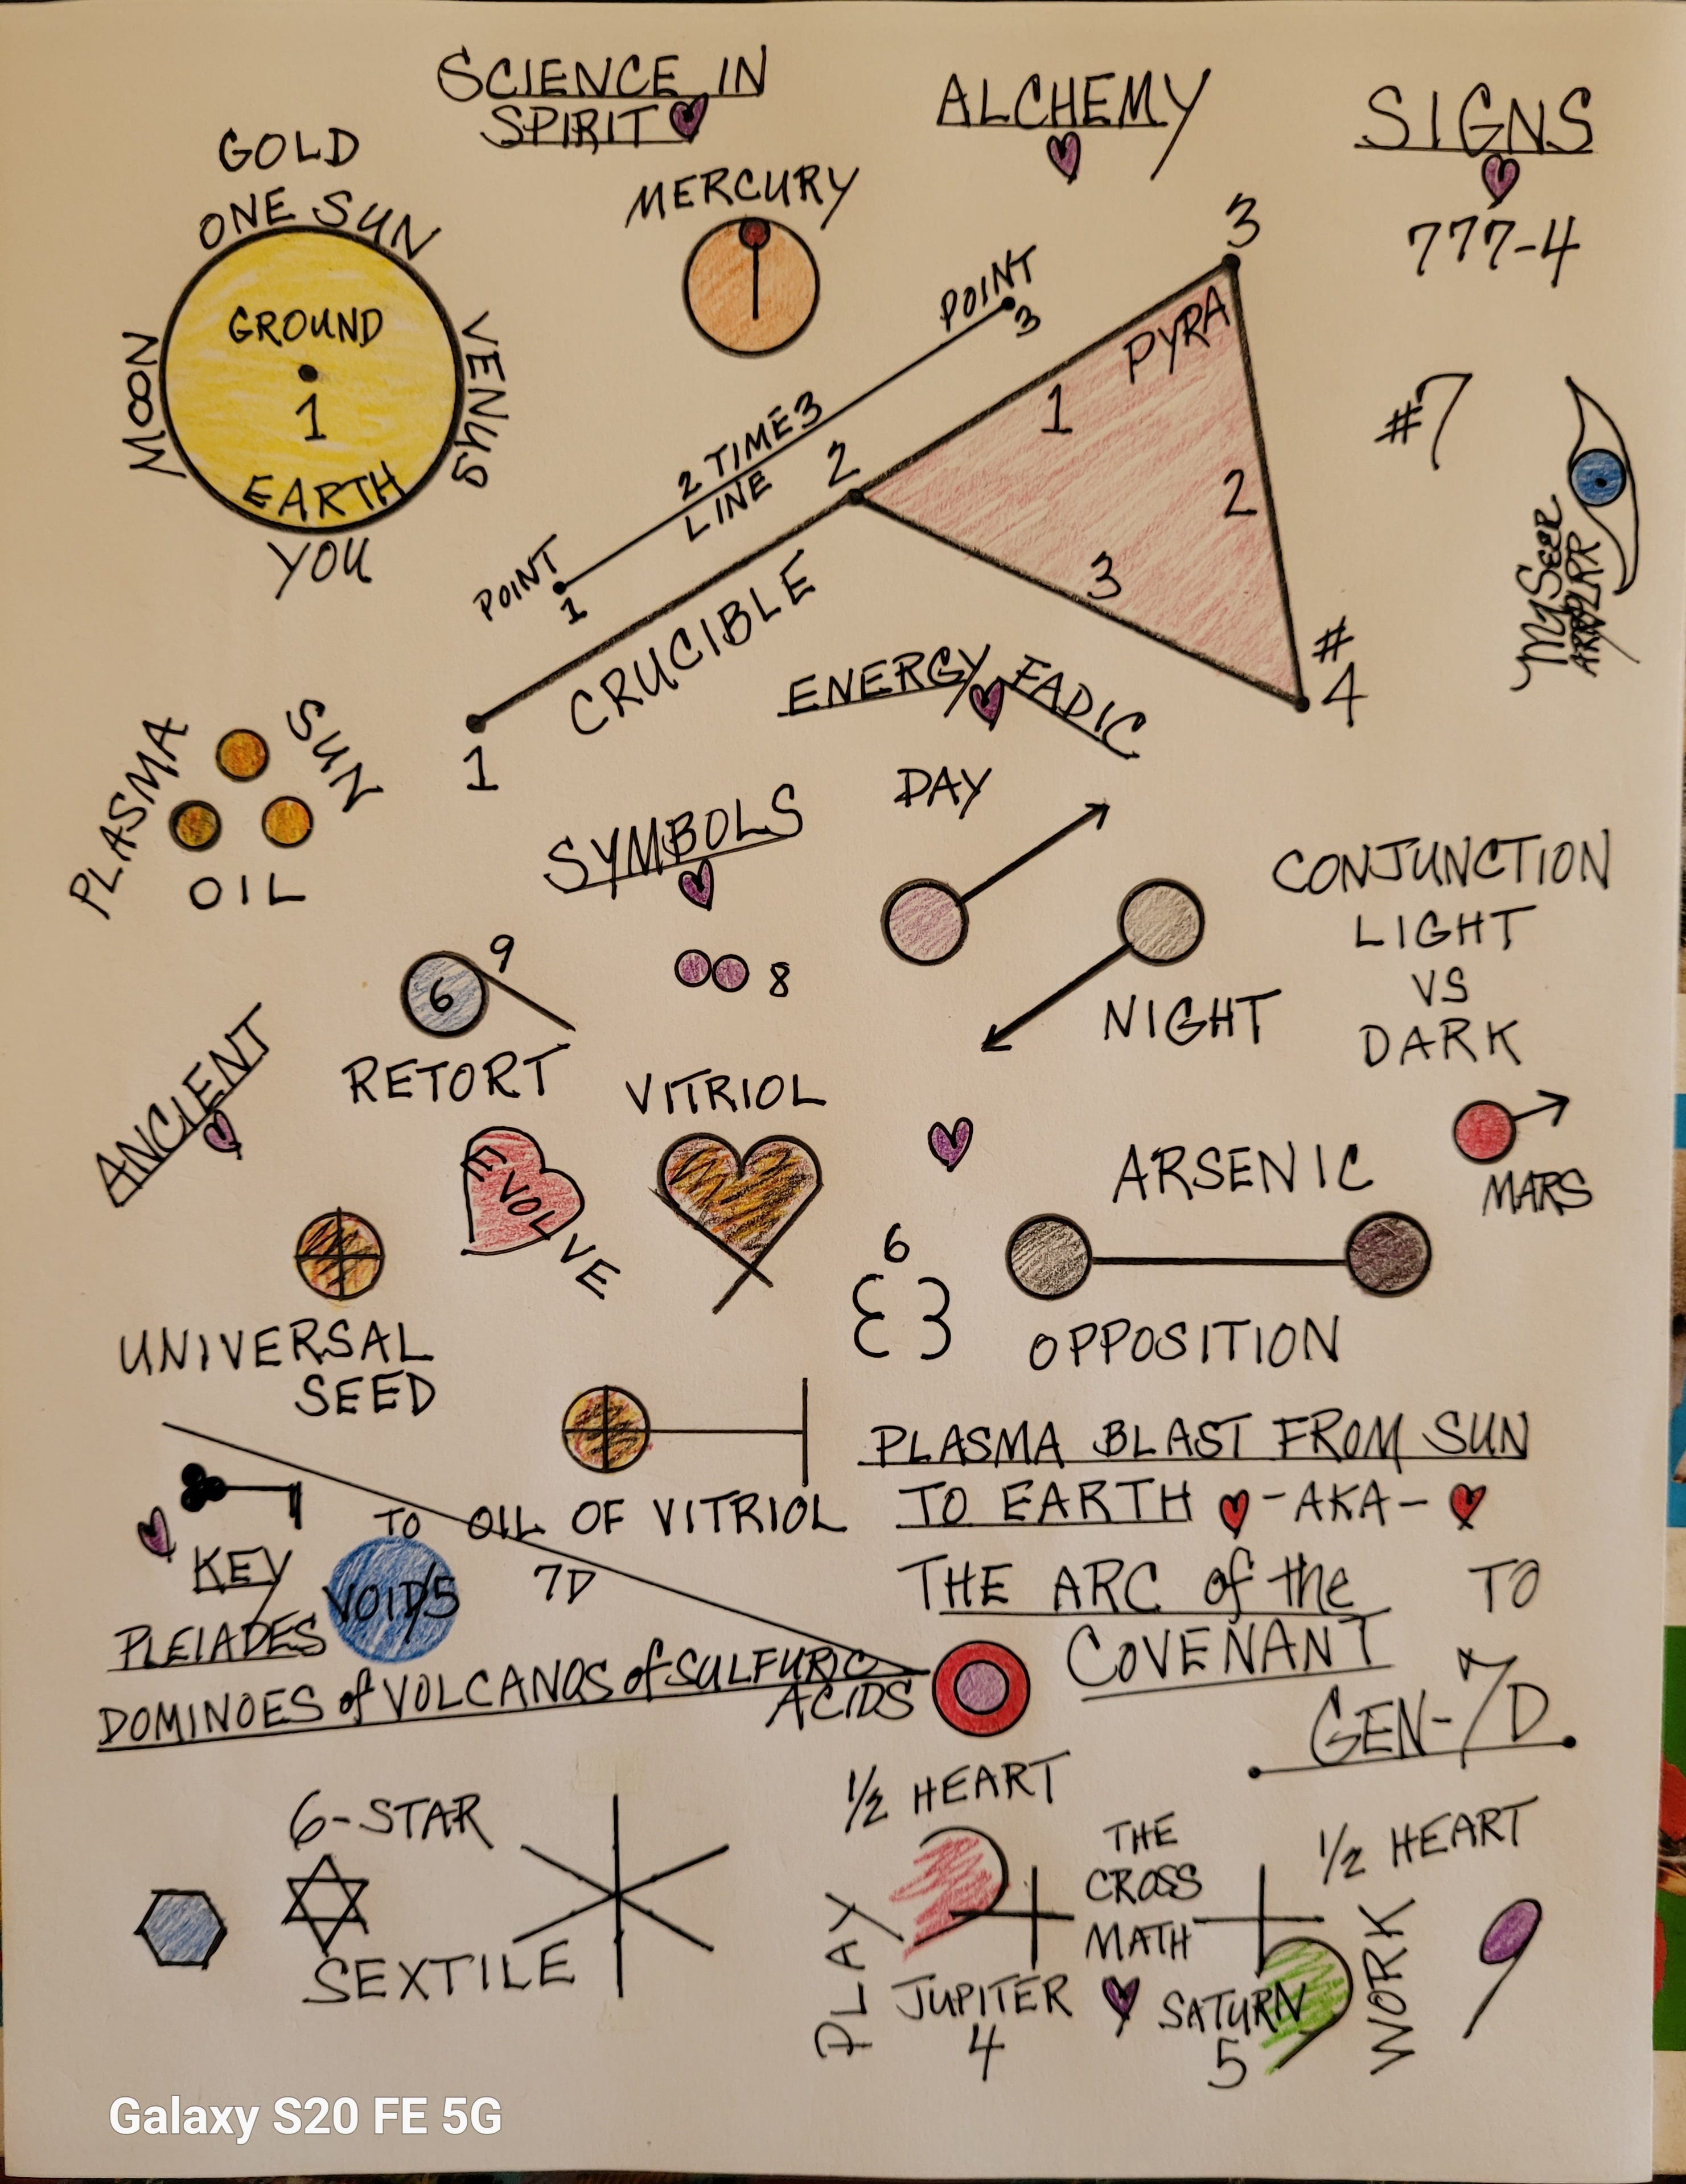 SCIENCE IN
SPIRIT
ALCHEMY
SIGNS
777-4
#7
GOLD
ONE SUN
MOON
VENUS
GROUND
1
EARTH
YOU
MERCURY
POINT
3
2 TIME3
LINE
POINT
1
3
PYRA
1
2
3
2
#
4
CRUCIBLE
1
MySeer
ENERGY FADIC
PLASMA
SUN
OIL
SYMBOLS
DAY
NIGHT
CONJUNCTION
LIGHT
VS
DARK
9
6
8
RETORT
ANCIENT
VITRIOL
EVOLVE
ARSENIC
MARS
6
OPPOSITION
UNIVERSAL
SEED
KEY
TO OIL OF VITRIOL
VOID/5
7D
PLEIADES
DOMINOES of VOLCANOS of SULFURIC
ACIDS
PLASMA BLAST FROM SUN
TO EARTH -AKA-
THE ARC of the
COVENANT
TO
GEN-7D
6-STAR
SEXTILE
1/2 HEART
PLAY
JUPITER
4
THE
CROSS
MATH
1/2 HEART
SATURN
5
WORK
9
Galaxy S20 FE 5G